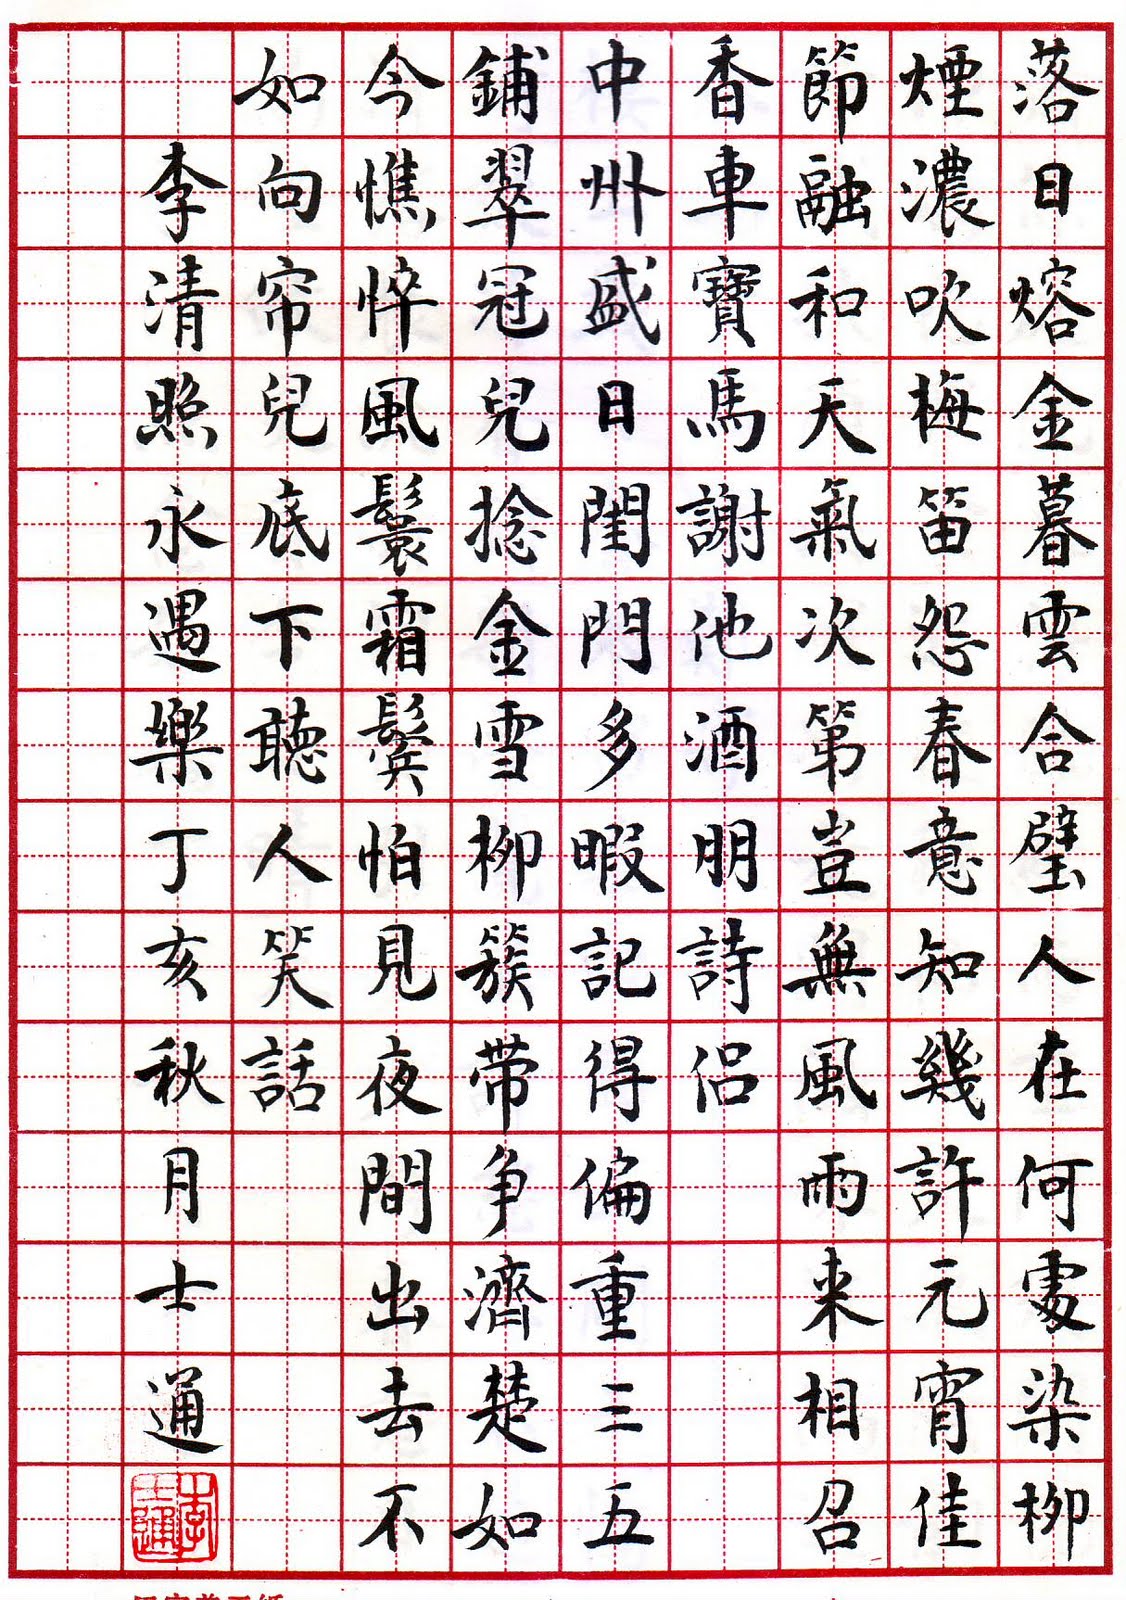 落日熔金暮雲合璧人在何處染柳
煙濃吹梅笛怨春意知幾許元宵佳
節融和天氣次第豈無風雨来相召
香車寶馬謝他酒朋詩侣
中州盛日閨門多暇記得偏重三五
鋪翠冠兒捻金雪柳簇带争濟楚如
今憔悴風鬟霜鬢怕見夜間出去不
如向帘兒底下聽人笑話
李清照永遇樂丁亥秋月士通
李士通